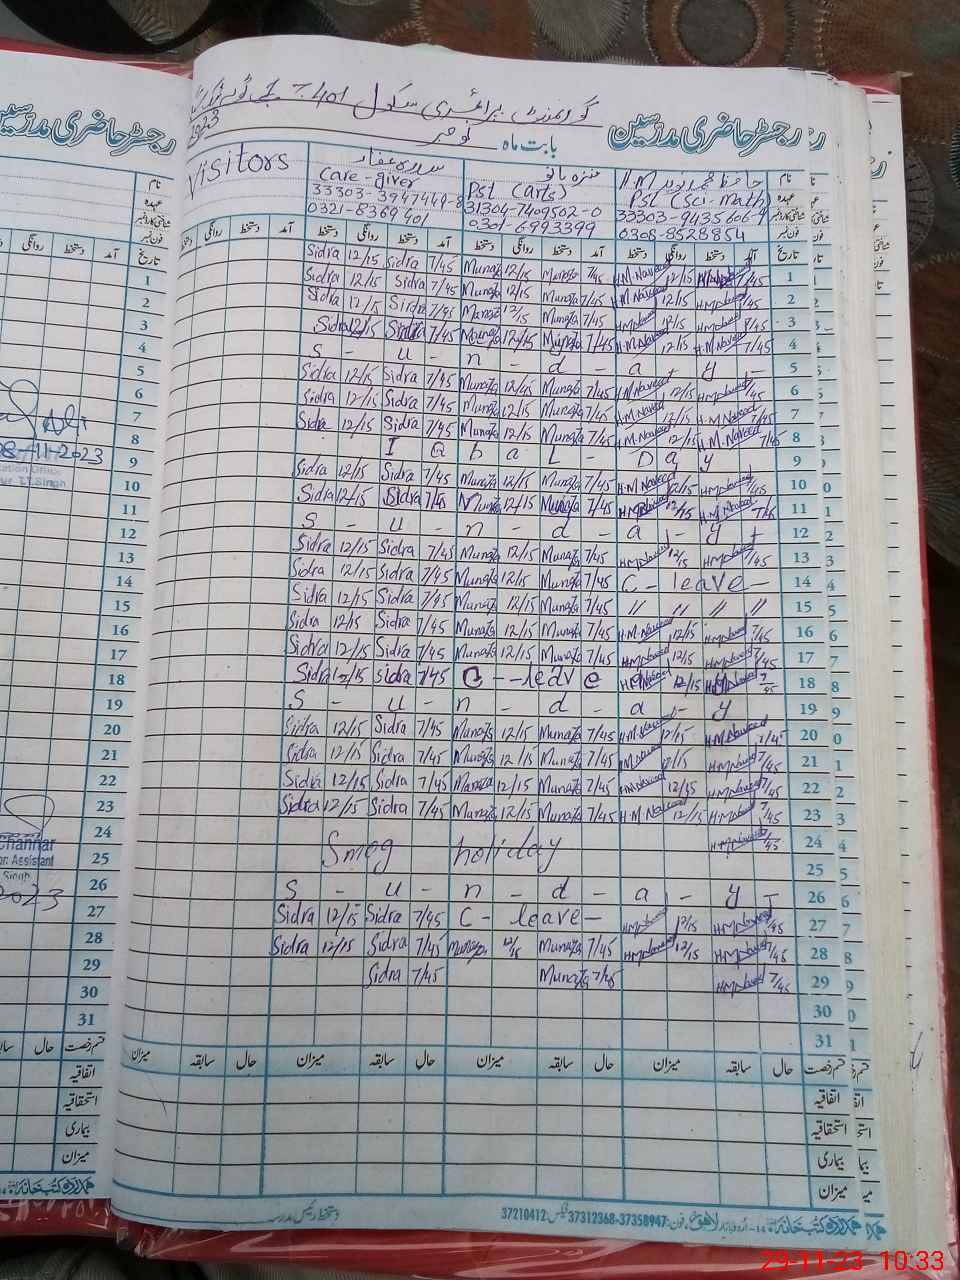 گورنمنٹ پرائمری سکول 401
2023
رجسٹر حاضری مدرسین بابت ماہ نومبر
Visitors سدرہ غفار منزہ بانو حافظ محمد نوید H.M نام
Care-giver PST (Arts) PST (Sci-math) عہدہ
33303-3947449-8 31304-7409502-0 33303-9435606-9 شناختی کارڈ نمبر
0321-8369401 0301-6993399 0306-8528854 فون نمبر
دستخط روانگی دستخط آمد روانگی دستخط آمد روانگی دستخط آمد تاریخ
Sidra 12/15 Sidra 7/45 Munaza 12/15 Munaza 7/45 H.M.Naveed 12/15 H.M.Naveed 7/45 1
Sidra 12/15 Sidra 7/45 Munaza 12/15 Munaza 7/45 H.M.Naveed 12/15 H.M.Naveed 7/45 2
Sidra 12/15 Sidra 7/45 Munaza 12/15 Munaza 7/45 H.M.Naveed 12/15 H.M.Naveed 7/45 3
Sidra 12/15 Sidra 7/45 Munaza 12/15 Munaza 7/45 H.M.Naveed 12/15 H.M.Naveed 7/45 4
S - u - n - d - a - y - 5
Sidra 12/15 Sidra 7/45 Munaza 12/15 Munaza 7/45 H.M.Naveed 12/15 H.M.Naveed 7/45 6
Sidra 12/15 Sidra 7/45 Munaza 12/15 Munaza 7/45 H.M.Naveed 12/15 H.M.Naveed 7/45 7
Sidra 12/15 Sidra 7/45 Munaza 12/15 Munaza 7/45 H.M.Naveed 12/15 H.M.Naveed 7/45 8
I Q b a L - D a y 9
Sidra 12/15 Sidra 7/45 Munaza 12/15 Munaza 7/45 H.M.Naveed 12/15 H.M.Naveed 7/45 10
Sidra 12/15 Sidra 7/45 Munaza 12/15 Munaza 7/45 H.M.Naveed 12/15 H.M.Naveed 7/45 11
S - u - n - d - a - y - 12
Sidra 12/15 Sidra 7/45 Munaza 12/15 Munaza 7/45 H.M.Naveed 12/15 H.M.Naveed 7/45 13
Sidra 12/15 Sidra 7/45 Munaza 12/15 Munaza 7/45 C - leave - 14
Sidra 12/15 Sidra 7/45 Munaza 12/15 Munaza 7/45 // // // // 15
Sidra 12/15 Sidra 7/45 Munaza 12/15 Munaza 7/45 H.M.Naveed 12/15 H.M.Naveed 7/45 16
Sidra 12/15 Sidra 7/45 Munaza 12/15 Munaza 7/45 H.M.Naveed 12/15 H.M.Naveed 7/45 17
Sidra 12/15 Sidra 7/45 C - - leave H.M.Naveed 12/15 H.M.Naveed 7/45 18
S - u - n - d - a - y 19
Sidra 12/15 Sidra 7/45 Munaza 12/15 Munaza 7/45 H.M.Naveed 12/15 H.M.Naveed 7/45 20
Sidra 12/15 Sidra 7/45 Munaza 12/15 Munaza 7/45 H.M.Naveed 12/15 H.M.Naveed 7/45 21
Sidra 12/15 Sidra 7/45 Munaza 12/15 Munaza 7/45 H.M.Naveed 12/15 H.M.Naveed 7/45 22
Sidra 12/15 Sidra 7/45 Munaza 12/15 Munaza 7/45 H.M.Naveed 12/15 H.M.Naveed 7/45 23
H.M.Naveed 7/45 24
Smog holiday 25
S - u - n - d - a - y - 26
Sidra 12/15 Sidra 7/45 C - leave - H.M.Naveed 12/15 H.M.Naveed 7/45 27
Sidra 12/15 Sidra 7/45 Munaza 12/15 Munaza 7/45 H.M.Naveed 12/15 H.M.Naveed 7/45 28
Sidra 7/45 Munaza 7/45 H.M.Naveed 7/45 29
30
31
میزان سابقہ حال میزان سابقہ حال میزان سابقہ حال میزان سابقہ حال قسم رخصت
اتفاقیہ
استحقاقیہ
بیماری
میزان
دستخط رئیس مدرسہ
ہمدرد کتب خانہ اردو بازار لاہور فون: 37358947-37312368 فیکس: 37210412
رجسٹر حاضری مدرسین
نام
عہدہ
شناختی کارڈ نمبر
فون نمبر
روانگی دستخط آمد تاریخ
1
2
3
4
5
6
7
8
08-11-2023
9
10
11
12
13
14
15
16
17
18
19
20
21
22
23
24
Channar
25
Assistant
Singh
26
2023
27
28
29
30
31
حال قسم رخصت
اتفاقیہ
استحقاقیہ
بیماری
میزان
ہمدرد کتب خانہ
29-11-23 10:33